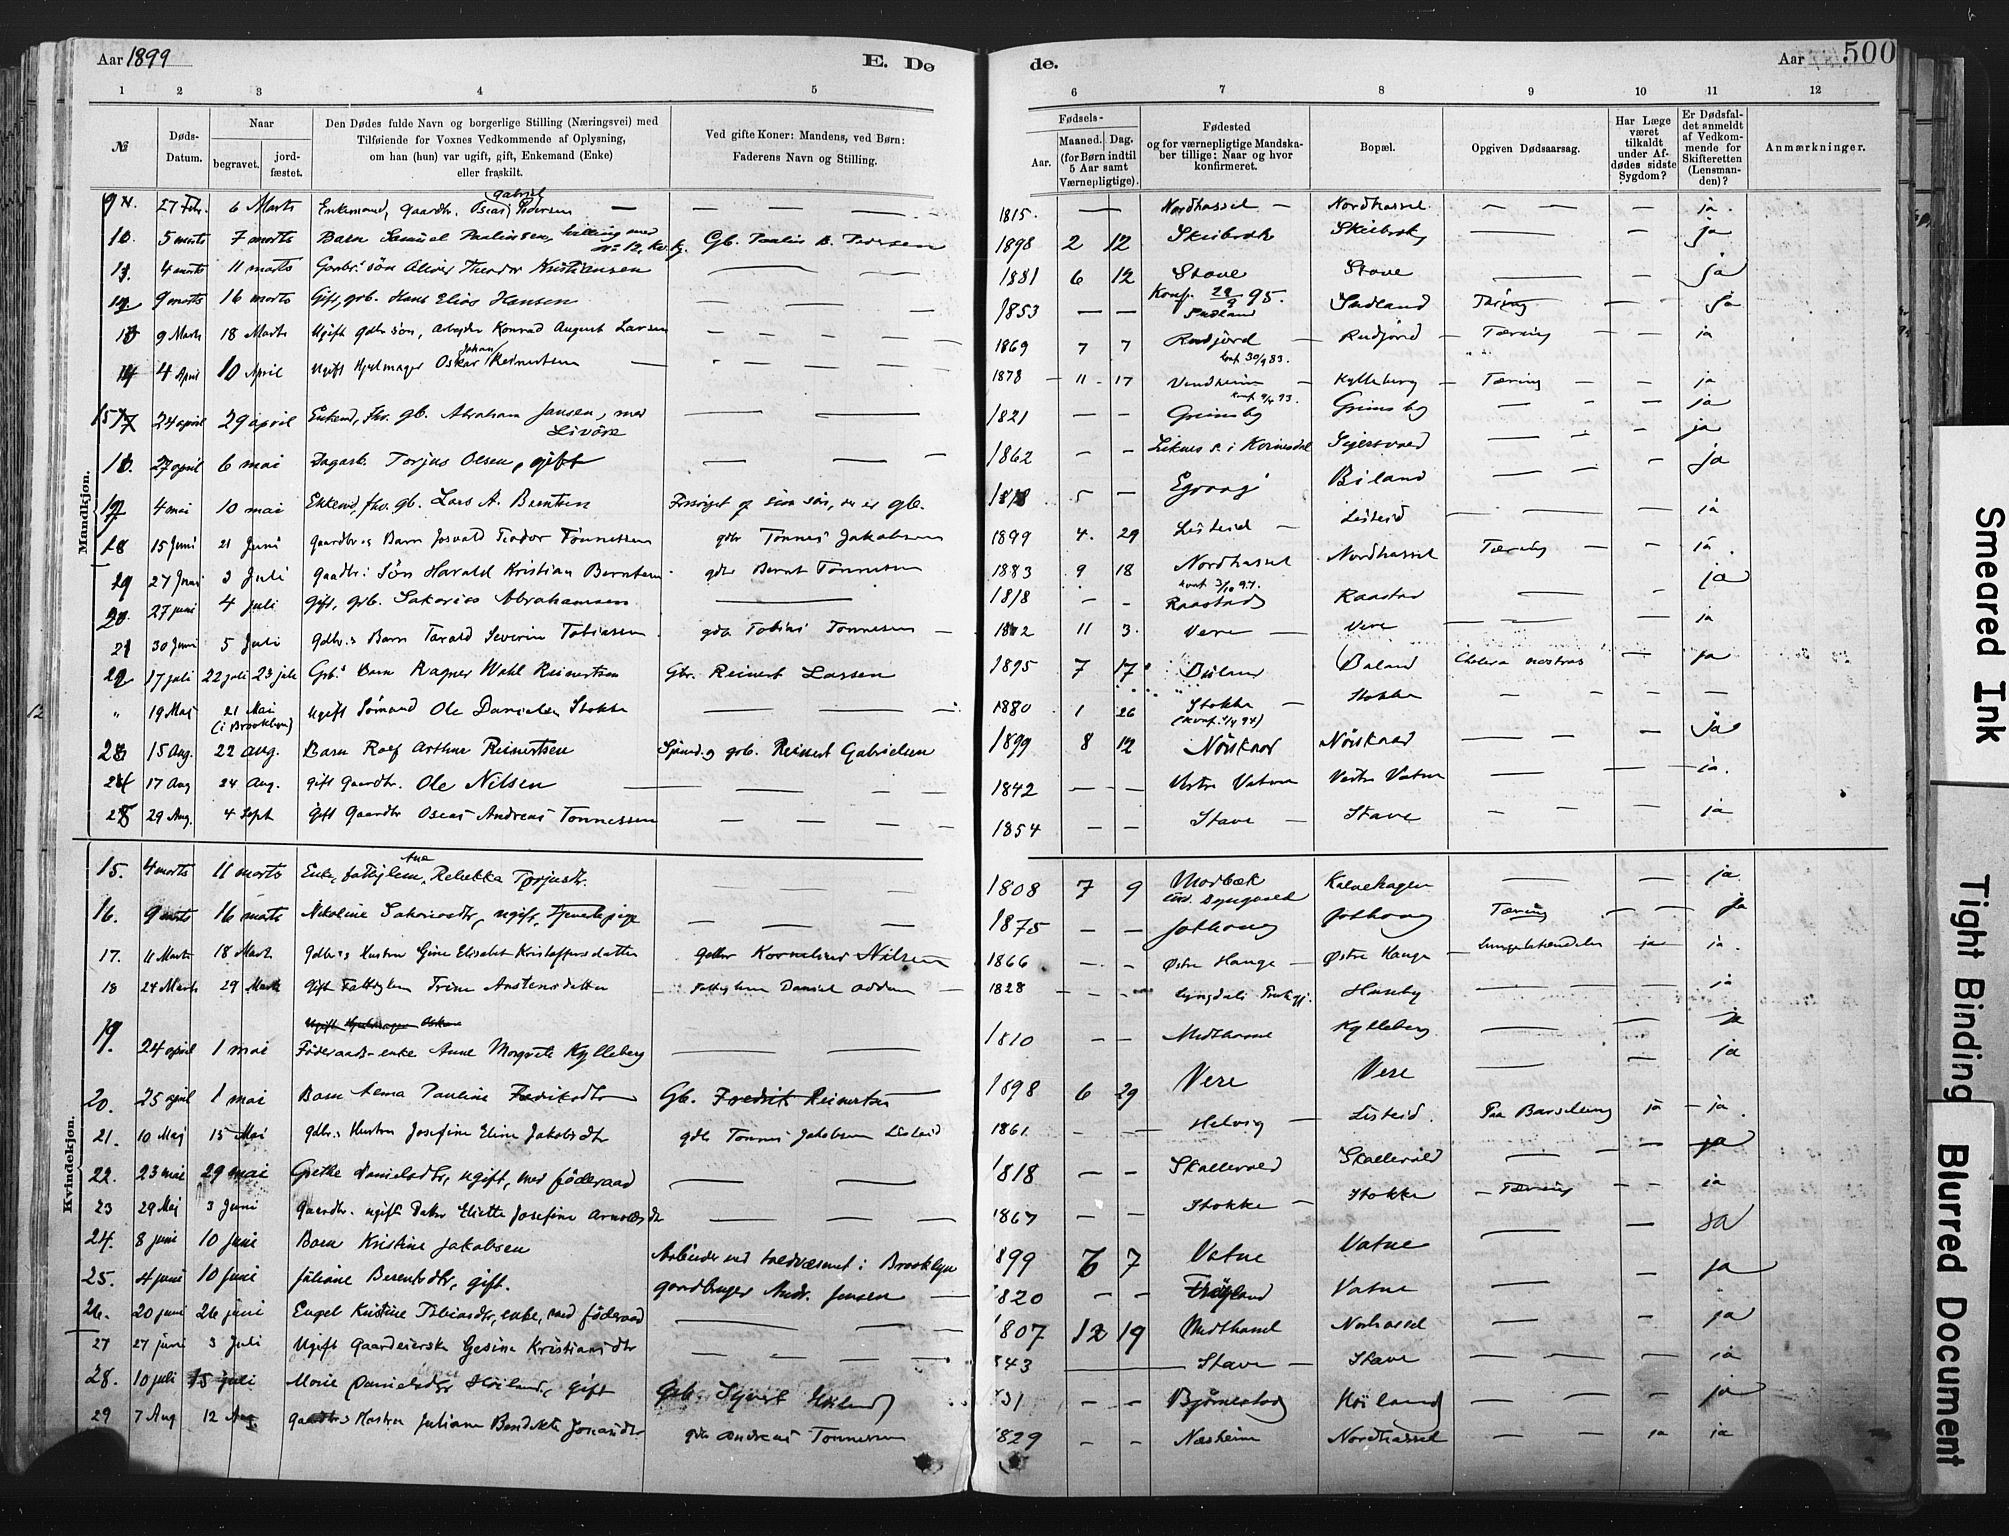 Aar 1899
E. Dø
1 2 3 4 5
№
Døds-
Datum.
Naar
begravet.
jord-
fæstet.
Den Dødes fulde Navn og borgerlige Stilling (Næringsvei) med
Tilføiende for Voxnes Vedkommende af Oplysning,
om han (hun) var ugift, gift, Enkemand (Enke)
eller fraskilt.
Ved gifte Koner: Mandens, ved Børn:
Faderens Navn og Stilling.
de.
Aar 500
6 7 8 9 10 11 12
Fødsels-
Aar.
Maaned. Dag.
(for Børn indtil
5 Aar samt
Værnepligtige).
Fødested
og for værnepligtige Mandska-
ber tillige: Naar og hvor
konfirmeret.
Bopæl.
Opgiven Dødsaarsag.
Har Læge
været
tilkaldt
under Af-
dødes sidste
Sygdom?
Er Dødsfal-
det anmeldt
af Vedkom-
mende for
Skifteretten
(Lensman-
den)?
Anmærkninger.
Mandkjøn.
9 27 Febr. 6 Marts Enkemand, Gaardbr. Oseas Gabriel Pedersen — — 1815. — Nordhassel — Nordhassel — — ja.
10 5 marts 7 marts Barn Samuel Paulinsen, tvilling med No 12, kv.kj. Gb. Paulin B. Pedersen 1898 2 12 Skeibrok Skeibrok — — ja
11 4 marts 11 marts Gaardbr. søn Oliver Theodor Kristiansen — — 1881 6 12 Stave Konf. 29/9 95. Stave — — ja
12 9 marts 16 marts Gift, grb. Hans Elias Hansen — — 1853 — — Sudland Sudland Tæring — — ja
13 9 Marts 18 Marts Ugift gdbr søn, Arbeider Konrad August Larsen — — 1869 7 7 Rudjord konf. 30/9 83. Rudjord — Tæring — ja
14 4 April 10 April Ugift Hjulmager Oskar Johan Reinertsen — 1878 — 11 — 17 Vindheim konf. 9/4 93. Kylleberg — Tæring — — ja
15 24 april 29 april Enkemd, fhv. gb. Abraham Jansen, med Livøre — — 1821 — — Grimsby Grimsby — — ja
16 27 april 6 mai Dagarb. Torjus Olsen, gift — — 1862 — — Liknes s. i Kvinesdal Sigersvold — — ja
17 4 mai 10 mai Enkemd, fhv. gb. Lars A. Berntsen Forsørget af sin søn, der er gb. 1818 5 — Egvaag Biland — — ja
18 15 Juni 21 Juni Gaardbr.s Barn Josvald Teodor Tønnessen gdbr Tønnes Jakobsen 1899 4. 29 Listeid — Listeid — — ja
19 27 Juni 3 Juli Gaardbr.s Søn Harald Kristian Berntsen gdbr Bernt Tønnesen 1883 9 18 Nordhassel konf. 3/10 97. Nordhassel Tæring — — ja.
20 27 juni 4 juli Gift, grb. Sakarias Abrahamsen — 1818 — — Raastad Raastad — — ja
21 30 Juni 5 Juli Gdbr.s Barn Tarald Severin Tobiassen gdbr Tobias Tønnesen — 11 3. Vere — Vere — — ja
22 17 juli 22 juli 23 juli Grb.s Barn Ragner Wahl Reinertsen Gbr. Reinert Larsen 1895 7 17 Biland Biland Cholera nostras — ja
" 19 Maj 21 Mai (i Brooklyn) Ugift Sømand Ole Danielsen Stokke — — 1880 1 26 Stokke (konf. 1/4 94) Stokke — — —
23 15 Aug. 22 Aug. Barn Rolf Arthur Reinertsen Sømd. og grb. Reinert Gabrielsen 1899 8 12 Nøiskaar Nøiskaar — — ja
24 17 Aug 24 Aug. Gift Gaardbr. Ole Nilsen — — 1842 — — Vestre Vatne Vestre Vatne — — ja.
25 29 Aug. 4 Sept Gift Gaardbr Oseas Andreas Tønnessen — — 1854 — — Stave — Stave — — ja
Kvindekjøn.
15. 4 marts 11 marts Enke, fattiglem, Ane Rebekka Torjusdtr. — — 1808 7 9 Morbæk Kalvehagen — — ja
16. 9 marts 16 marts Nikoline Sakariasdtr, ugift, tjenestepige — — 1875 — — Jølhoug Jølhoug Tæring — — ja
17. 11 Marts 18 Marts Gdbr.s Hustru Gine Elisabet Kristoffersdatter Gdbr Kornelius Nilsen 1866 — — Østre Hauge — Østre Hauge — Lungebetændelse ja ja.
18 24 Marts 29 Marts Gift Fattiglem Trine Anstensdatter Fattiglem Daniel — 1828 — — Lyngdals Prstgj. Huseby — — ja
19. Ugift Hjulmager Oskar
24 april 1 mai Føderaads-enke Anne Margrete Kylleberg — — 1810 — — Midthassel Kylleberg — — ja
20. 25 april 1 mai Barn Anna Pauline Fredriksdtr Gb. Fredrik Reinertsen 1898 6 29 Vere Vere — — ja
21. 10 Maj 15 Mai Gdbr.s Hustru Josefine Eline Jakobsdtr gdbr Tønnes Jakobsen Listeid 1861 — — Helvig — Listeid. Paa Barselseng ja — ja.
22. 23 mai 29 mai Grethe Danielsdtr, ugift, med føderaad — — 1818 — — Skollevold Skollevold — — ja
23 29 Maj 3 Juni Gaardbr. ugift Datter Eliette Josefine Arnesdtr — — 1867 — — Stokke — Stokke — Tæring — — ja
24. 8 juni 10 juni Barn Kristine Jakobsen Arbeider ved toldvæsenet i Brooklyn 1899 6 7 Vatne Vatne — — ja
25. 4 juni 10 juni Juliane Berentsdtr, gift. gaardbruger Andr. Jensen — 1820 — — Frøyland Vatne — — ja
26. 20 juni 26 juni Engel Kristine Tobiasdtr, enke, med føderaad — — 1807 12 19 Midthassel Norhassel — — ja
27 27 juni 3 Juli Ugift Gaardeierske Gesine Kristiansdtr — — 843 — Stave — Stave — — ja
28. 10 juli 15 juli Marie Danielsdtr Høiland, gift Grb. Sivert Høiland 31 — — Bjørnestad Høiland — — ja
29 7 Aug 12 Aug Gaardbr.s Hustru Juliane Bendikte Jonasdtr gdbr Andreas Tønnesen 829 — — Næsheim Nordhassel — — ja ja
12
Smeared Ink
Tight Binding
Blurred Document